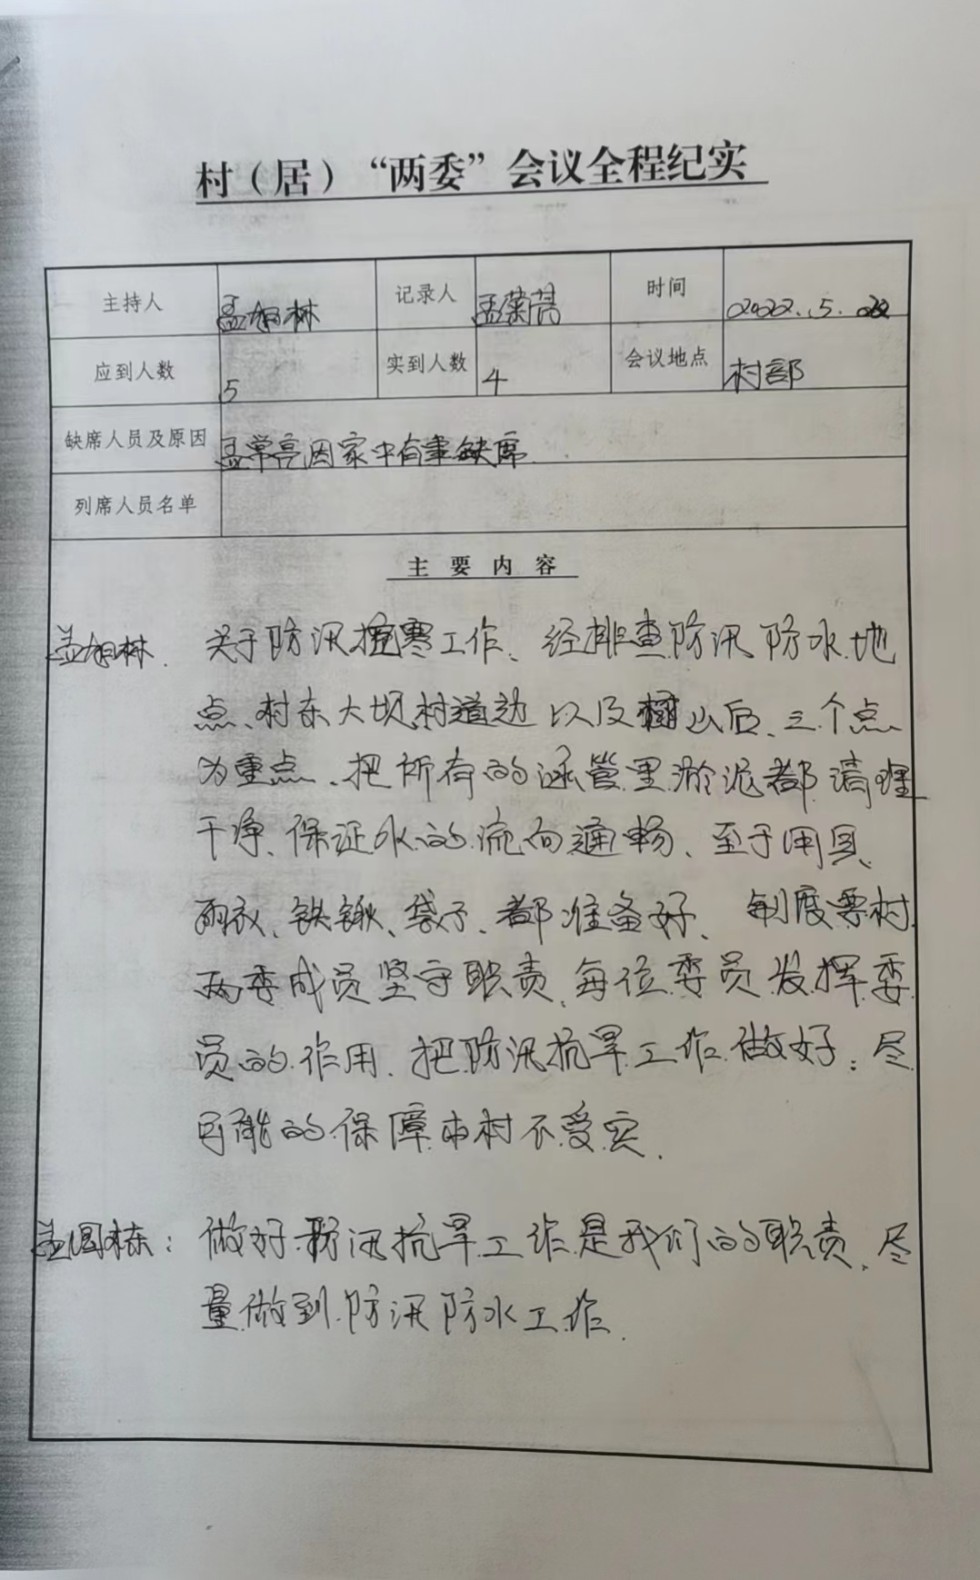 村（居）“两委”会议全程纪实
主持人 孟旭林 记录人 孟荣 时间 2022.5.
应到人数 5 实到人数 4 会议地点 村部
缺席人员及原因 孟常亮因家中有事缺席
列席人员名单
主要内容
孟旭林. 关于防汛工作、经排查防汛防水地
点、村东大坝村道边以及山后、三个点
为重点、把所有的涵管里淤泥都清理
干净、保证水的流向通畅、至于用具、
雨衣、铁锹、袋子、都准备好、制度要村
两委成员坚守职责、每位委员发挥委
员的作用、把防汛抗旱工作做好；尽
可能的保障本村不受灾.
孟国栋：做好防汛抗旱工作是我们的职责、尽
量做到防汛防水工作.